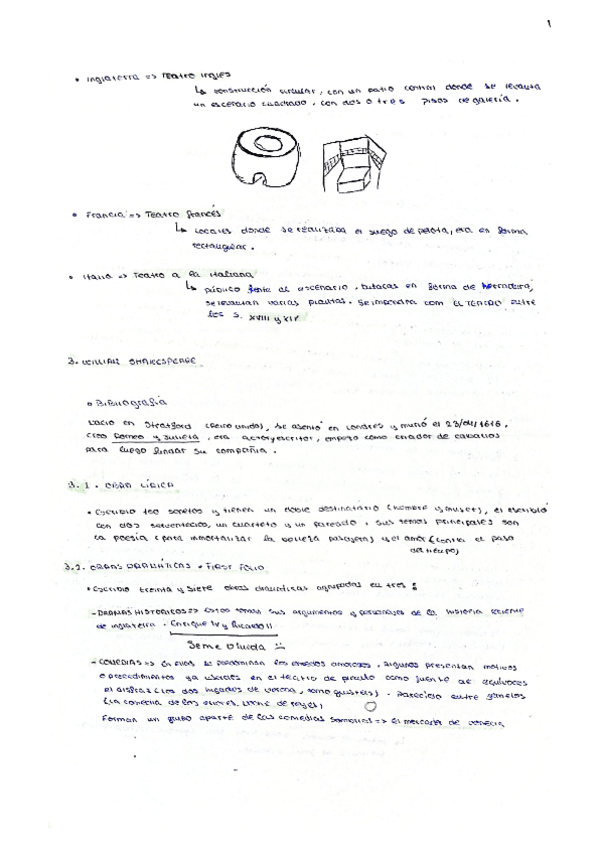 1
• Inglaterra => Teatro inglés
↳ construcción circular, con un patio central donde se levanta
un escenario cuadrado, con dos o tres pisos de galería.
• Francia => Teatro francés
↳ Locales donde se realizaba el juego de pelota, era en forma
rectangular.
• Italia => Teatro a la italiana
↳ público frente al escenario, butacas en forma de herradura,
se levantan varias plantas. Se impondrá com EL TEATRO entre
los s. XVIII y XIX
3. WILLIAM SHAKESPEARE
• Bibliografía
Nació en Stratford (Reino Unido), se asentó en Londres y murió el 23/04/1616.
Creo Romeo y Julieta, era actor y escritor, empezó como criador de caballos
para luego fundar su compañía.
3.1. OBRA LÍRICA
• Escribió 160 sonetos y tienen un doble destinatario (hombre y mujer), el escribió
con dos serventesios, un cuarteto y un pareado. Sus temas principales son
la poesía (para inmortalizar la belleza pasajera) y el amor (contra el paso
del tiempo)
3.2. OBRAS DRAMÁTICAS • FIRST FOLIO
• Escribió treinta y siete obras dramáticas agrupadas en tres:
- DRAMAS HISTÓRICOS => Estos toman sus argumentos y personajes de la historia reciente
de Inglaterra. Enrique IV y Ricardo II
Se me olvida
- COMEDIAS => En ellas predominan los enredos amorosos, algunos presentan motivos
o procedimientos ya usuales en el teatro de Plauto como fuente de equívocos
el disfraz (los dos hidalgos de Verona, como gustéis). Parecido entre gemelos
(la comedia de los errores, noche de reyes)
Forman un grupo aparte de las comedias sombrías => El mercader de Venecia